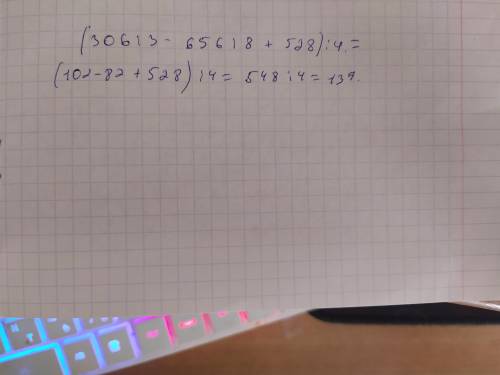 (306:3 - 656:8 + 528):4.=
(102-82+528):4= 548:4= 137.